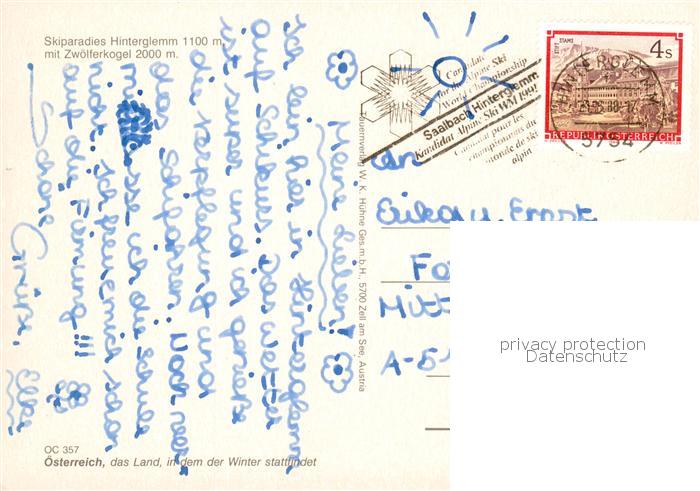 Skiparadies Hinterglemm 1100 m,
mit Zwölferkogel 2000 m.
Meine Lieben!
Ich bin hier in Hinterglemm
auf Schikurs. Das Wetter
ist super und ich genieße
die Verpflegung und
das Schifahren. Noch ver-
misse ich die Schule
nicht. Ich freue mich schon
auf die Firmung!!!
Schöne Grüße,
Elke
OC 357
Österreich, das Land, in dem der Winter stattfindet
Bauernverlag W. K. Hühne Ges.m.b.H., 5700 Zell am See, Austria
Candidate
for the Alpine Ski
World Championship
Saalbach Hinterglemm
Kandidat Alpine Ski WM 1991
Candidat pour les
championnats du
monde de ski
alpin
STIFT STAMS
4 S
REPUBLIK ÖSTERREICH
HINTERGLEMM
5754
An
Erika u. Ernst
Fo
Mitt
A-51
privacy protection
Datenschutz